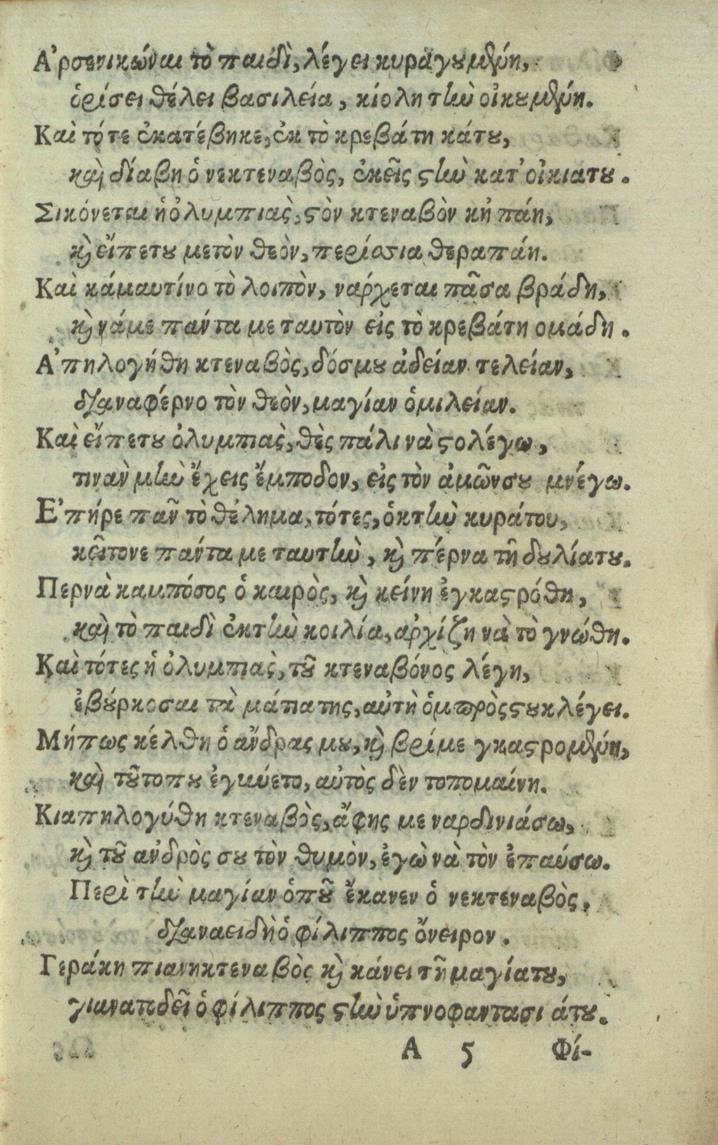 Α'ρσενικὼν̓αι τὸ παιδὶ, λέγει κυρἀγουμένη,
ὁρίσει θέλει βασιλεία, κιόλη τὴν οἰκουμένη.
Καὶ τότε ἐκατέβηκε, ἐκ τὸ κρεβάτη κάτου,
καὶ διάβη ὁ νεκτεναβὸς, ἐκεῖς στὴν κατ' οἰκιατου.
Σικόνεται ἡ ὀλυμπιὰς, στὸν κτεναβὸν κὴ πάη,
κὶ εἴπετου μετὸν θεὸν, περίσσια θεραπάη.
Καὶ κάμαυτίνο τὸ λοιπὸν, ναρχεται πᾶσα βράδη,
κὶ νἄμε πάντα με ταυτὸν εἰς τὸ κρεβάτη ομάδη.
Α'πηλογήθη κτεναβὸς, δόσμου ἀδείαν τελείαν,
διαναφέρνο τὸν θεὸν, μαγίαν ὁμιλείαν.
Καὶ εἴπετου ὀλυμπιας, θὲς πάλι νὰ στολέγω,
τιναν μὴν ἔχεις ἔμποδον, εἰς τὸν ἀμῶνσου μνέγω.
Ε'πήρε παν τὸ θέλημα, τότες, ὁκτὴν κυράτου,
κεῖτονε πάντα με ταυτὴν, κὶ πέρνα τῆ δουλίατου.
Περνὰ καμπόσος ὁ καιρὸς, κὶ κείνη ἐγκαστρόθη,
καὶ τὸ παιδὶ ἐκτὴν κοιλία, αρχίζη νὰ τὸ γνώθη.
Καὶ τότες ἡ ὀλυμπιας, τοῦ κτεναβόνος λέγη,
ἐβούρκοσαι τὰ μάτια της, αὐτὴ ὁμπρὸς τουκλέγει.
Μήπως κέλθη ὁ ἄνδρας μου, κὶ βρίμε γκαστρομένη,
καὶ τοῦτο που ἐγκύετο, αὐτὸς δὲν τοπομαίνη.
Κιαπηλογύθη κτεναβὸς, ἄφης με ναρδινιάσω,
κὶ τοῦ ανδρὸς σου τὸν θυμὸν, ἐγὼ νὰ τὸν ἐπαύσω.
Περὶ τὴν μαγίαν ὁποῦ ἔκανεν ὁ νεκτεναβὸς,
διαναειδὴ ὁ φίλιππος ὄνειρον.
Γεράκη πιανηκτεναβὸς κὶ κάνει τῆ μαγίατου,
γιανατιδεῖ ὁ φίλιππος στὴν ὑπνοφαντασι άτου.
Α 5 Φί-